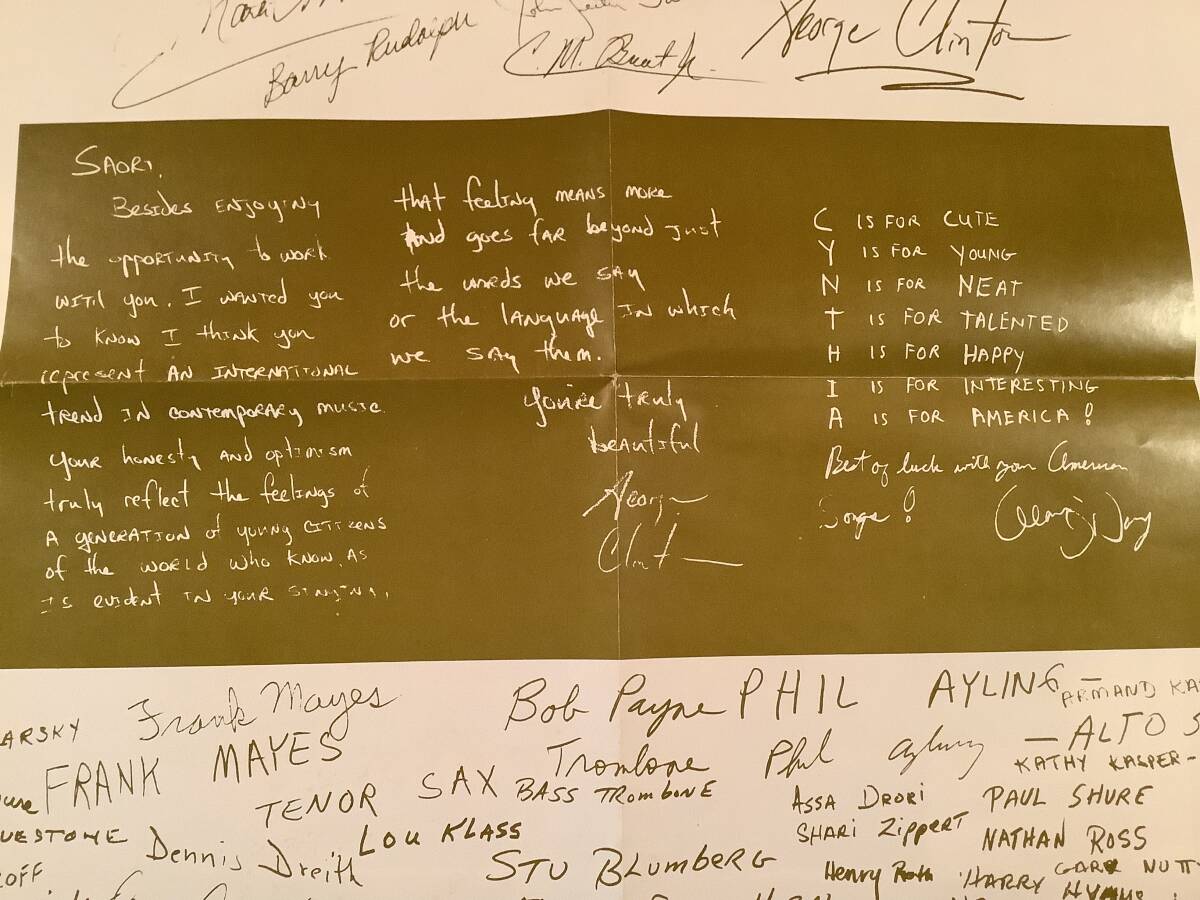 Barry Rudolph
C.M.
George Clinton
SAORI,
BESIDES ENJOYING
the opportunity to work
WITH you. I WANTED you
to KNOW I think you
represent AN INTERNATIONAL
trend IN contemporary music.
your honesty AND optimism
truly reflect the feelings of
A generation of young CITIZENS
of the WORLD who KNOW, AS
IS evident IN your SINGING,
that feeling MEANS more
And goes FAR beyond just
the words we SAY
or the language IN which
we SAY them.
You're truly
beautiful
George
Clint
C IS FOR CUTE
Y IS FOR YOUNG
N IS FOR NEAT
T IS FOR TALENTED
H IS FOR HAPPY
I IS FOR INTERESTING
A IS FOR AMERICA!
Best of luck with your American
Songs!
ARSKY
Frank Mayes
FRANK MAYES
TENOR SAX
Bob Payne
Trombone
BASS TROMBONE
PHIL AYLING
Phil Ayling
ARMAND KA
— ALTO S
KATHY KASPER -
UESTONE
Dennis Dreith
LOU KLASS
ASSA DRORI
PAUL SHURE
SHARI ZIPPERT
NATHAN ROSS
OFF
STU BLUMBERG
Henry Roth
GARY NUTT
HARRY